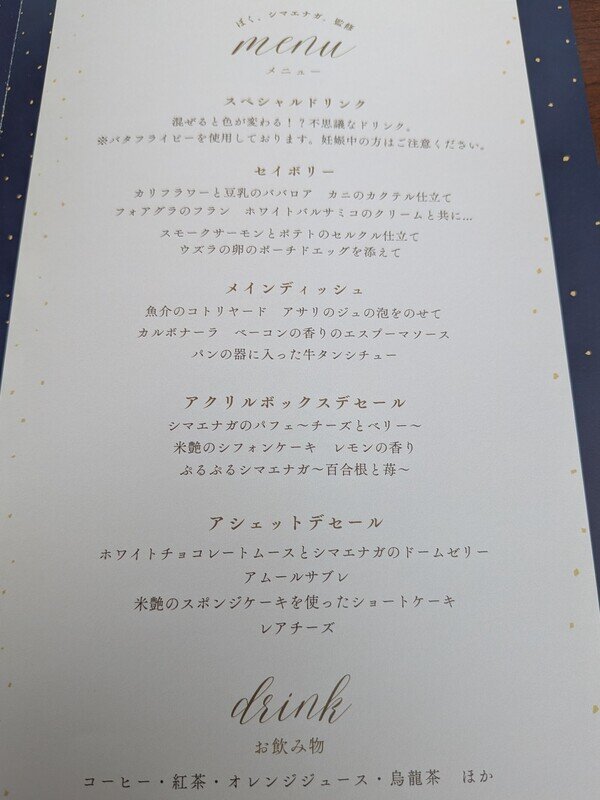 ぼく、シマエナガ。監修
menu
メニュー
スペシャルドリンク
混ぜると色が変わる！？不思議なドリンク。
※バタフライピーを使用しております。妊娠中の方はご注意ください。
セイボリー
カリフラワーと豆乳のババロア　カニのカクテル仕立て
フォアグラのフラン　ホワイトバルサミコのクリームと共に…
スモークサーモンとポテトのセルクル仕立て
ウズラの卵のポーチドエッグを添えて
メインディッシュ
魚介のコトリヤード　アサリのジュの泡をのせて
カルボナーラ　ベーコンの香りのエスプーマソース
パンの器に入った牛タンシチュー
アクリルボックスデセール
シマエナガのパフェ～チーズとベリー～
米艶のシフォンケーキ　レモンの香り
ぷるぷるシマエナガ～百合根と苺～
アシェットデセール
ホワイトチョコレートムースとシマエナガのドームゼリー
アムールサブレ
米艶のスポンジケーキを使ったショートケーキ
レアチーズ
drink
お飲み物
コーヒー・紅茶・オレンジジュース・烏龍茶　ほか